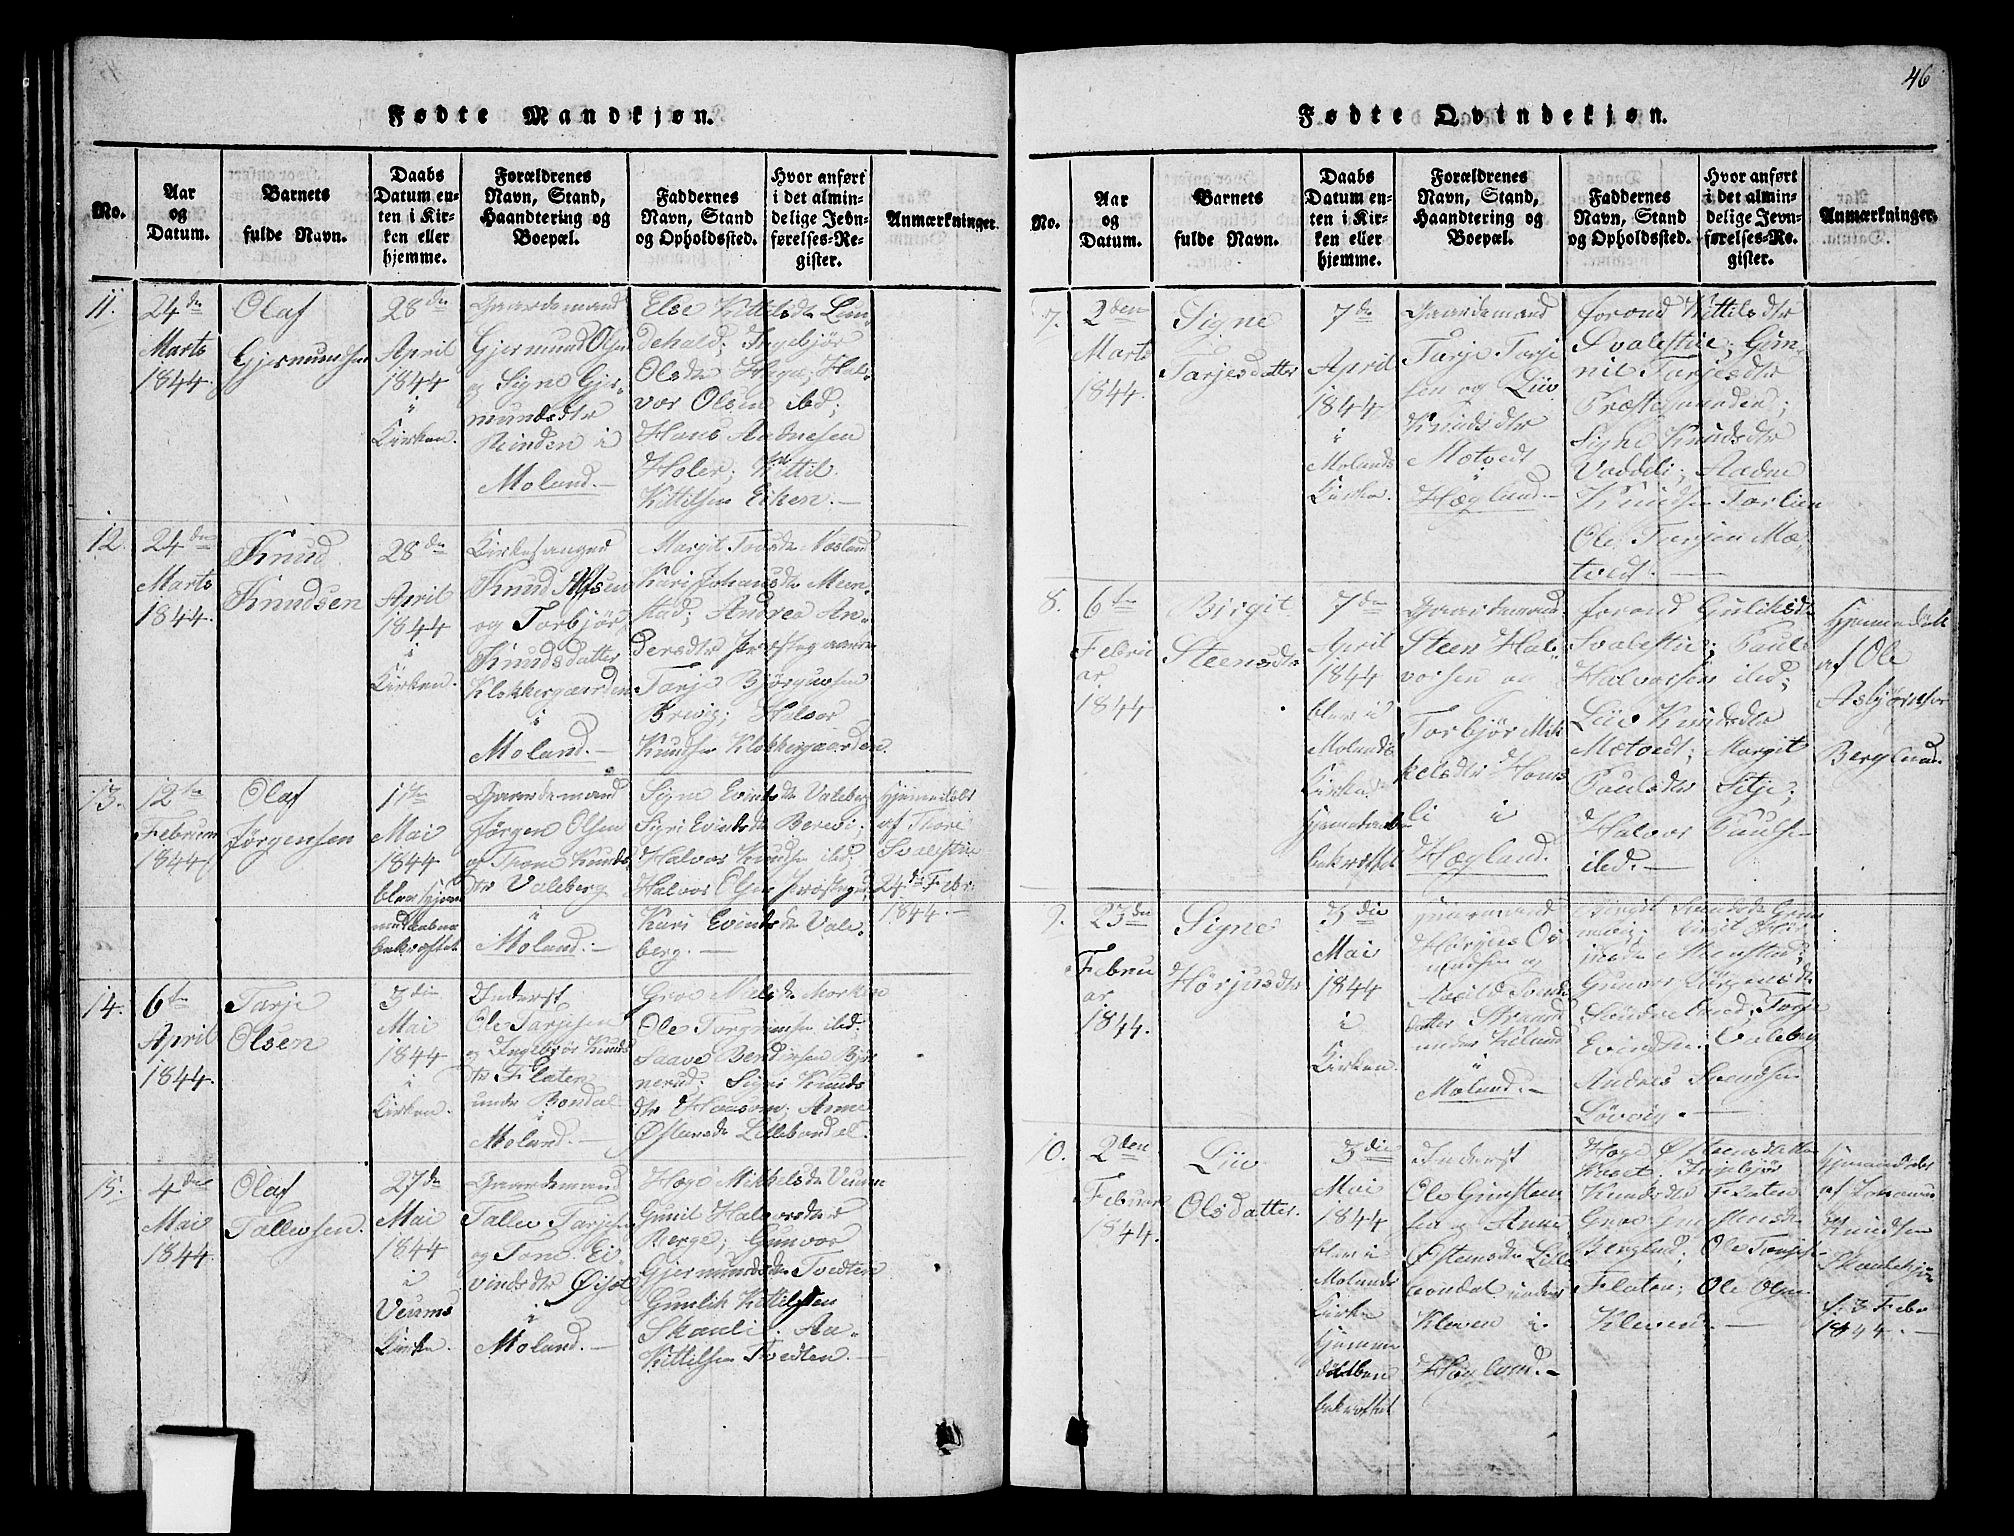 46
Fødte Mandkjøn.
No.
Aar
og
Datum.
Barnets
fulde Navn.
Daabs
Datum en-
ten i Kir-
ken eller
hjemme.
Forældrenes
Navn, Stand,
Haandtering og
Boepæl.
Faddernes
Navn, Stand
og Opholdssted.
Hvor anført
i det almin-
delige Jevn-
førelses-Re-
gister.
Anmærkninger.
11.
24de
Marts
1844.
Olaf
Gjermundsen
28de
April
1844
i
Kirken.
Gaardemand
Gjermund Olsen
og Signe Gjer-
mundsdtr
Rinden i
Moland.
Else Kittilsdtr Lin-
dehald; Ingebjør
Olsdtr Haga; Hal-
vor Olsen ibd;
Hans Andresen
Holer; Kittil
Kittilsen Eiken.
12.
24de
Marts
1844.
Knud
Knudsen
28de
April
1844
i
Kirken.
Kirkesanger
Knud Alfsen
og Torbjør
Knudsdatter
Klokkergaarden
i
Moland.
Margit Torsdtr Næsland
Kari Johansdtr Mem-
stad; Andrea An-
dersdtr Præstegaarden
Tarje Bjørgulfsen
Brevig; Halvor
Knudsen Klokkergaarden.
13.
12te
Februar
1844.
Olaf
Jørgensen
1ste
Mai
1844
blev hjem-
medaaben
bekræftet.
Gaardemand
Jørgen Olsen
og Tone Knuds-
dtr Valeberg
i
Moland.
Signe Evindsdtr Valeberg
Sigri Evindsdtr Berevi;
Halvor Knudsen ibd;
Halvor Olsen Præstegrd;
Kari Evindsdtr Vale-
berg.
Hjemmedøbt
af Thore
Svalestue
24de Febr.
1844.
14.
6te
April
1844.
Tarje
Olsen
3die
Mai
1844
i
Kirken.
Inderst
Ole Tarjesen
og Ingebør Knuds
dtr Flaten
under Bondal
i
Moland.
Groe Nielsdtr Morken
Ole Torgrimsen ibd;
Saave Bendixsen Bjør
nerud; Sigri Knuds
dtr Haasum; Anne
Østensdtr Lillebondal.
15.
4de
Mai
1844.
Olaf
Tallevsen.
27de
Mai
1844
i
Veums
Kirke.
Gaardemand
Tallev Tarjesen
og Tone Ei-
vindsdtr Øisæl
i
Moland.
Hæge Mikkelsdtr Veum
Gunil Halvorsdtr
Berge; Gunvor
Gjermundsdtr Tvedten
Gunlik Kittilsen
Skauli; Aa-
Kittilsen Tvedten.
Fødte Qvindekjøn.
No.
Aar
og
Datum.
Barnets
fulde Navn.
Daabs
Datum en-
ten i Kir-
ken eller
hjemme.
Forældrenes
Navn, Stand,
Haandtering og
Boepæl.
Faddernes
Navn, Stand
og Opholdssted.
Hvor anført
i det almin-
delige Jevn-
førelses-Re-
gister.
Anmærkninger.
7.
2den
Marts
1844.
Signe
Tarjesdatter
7de
April
1844
i
Molands
Kirke.
Gaardemand
Tarje Tarje
sen og Liv
Knudsdtr
Motvedt
i
Høglund.
Jorond Kittilsdtr
Svalestue; Gun-
nil Tarjesdtr
Præstegaarden;
Signe Knudsdtr
Vaddeli; Aadne
Knudsen Torlien
Ole Tarjesen Mo-
tvedt.
8.
6te
Febru
ar
1844
Birgit
Steensdtr
7de
April
1844
blev i
Molands
Kirke
hjemdaaben
bekræftet
Gaardemand
Steen Hal-
vorsen og
Torbjør Mik
kelsdtr Homs
li i
Høgland.
Jorond Guliksdtr
Svalestue; Paul
Halvorsen ibd;
Liv Knudsdtr
Motvedt; Margit
Paulsdtr Sitje;
Halvor Paulsen
ibd.
Hjemmedøbt
af Ole
Asbjørnsen
Berglund.
9.
23de
Febru
ar
1844.
Signe
Hørjusdtr
3die
Mai
1844
i
Kirken.
Hørjus Os
mundsen og
Aasild Svends
datter Straand
under Kiland
i
Moland.
Gunvor Jørgensdtr
Søndrebrud; Tarje
Evindsen Valeberg
Andres Svendsen
Løvvig.
10.
2den
Februar
1844.
Liv
Olsdatter.
3die
Mai
1844
blev i
Molands
Kirke
hjemme
daaben
bekræftet
Inderst
Ole Gunsten
sen og Anne
Østensdtr Lille
bondal under
Kleven i
Høglund.
Knudsdtr Flaten
Groe Gunstensdtr
Berglund; Ole Tarjesen
Flaten; Ole Olsen
Kleven.
Hjemmedøbt
af
Knudsen
d. 3 Febr
1844.